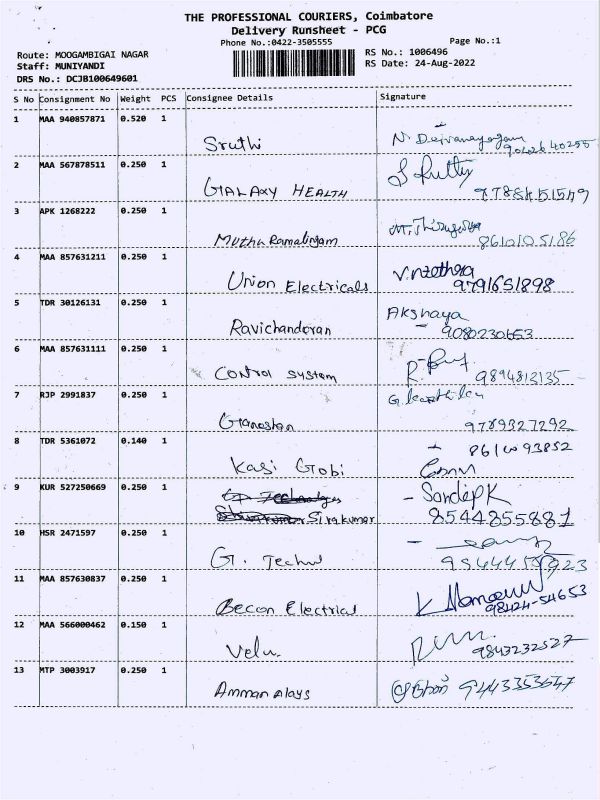 THE PROFESSIONAL COURIERS, Coimbatore
Delivery Runsheet - PCG
Phone No.:0422-3505555
Page No.:1
Route: MOOGAMBIGAI NAGAR
RS No.: 1006496
Staff: MUNIYANDI
RS Date: 24-Aug-2022
DRS No.: DCJB100649601
S No Consignment No Weight PCS Consignee Details Signature
1 MAA 940857871 0.520 1 Sruthi
2 MAA 567878511 0.250 1 GALAXY HEALTH
3 APK 1268222 0.250 1 Muthu Ramalingam 8610105186
4 MAA 857631211 0.250 1 Union Electricals 9791651898
5 TDR 30126131 0.250 1 Ravichandran Akshaya
9080230653
6 MAA 857631111 0.250 1 Control System 9894813135
7 RJP 2991837 0.250 1 Ganeshan 9789327292
8 TDR 5361072 0.140 1 Kasi Gobi
9 KUR 527250669 0.250 1 Sivakumar Sandeep K
8544855881
10 HSR 2471597 0.250 1
11 MAA 857630837 0.250 1 Becon Electrical 98424-54653
12 MAA 566000462 0.150 1 Velu. 9843232527
13 MTP 3003917 0.250 1 Amman alays 9443353647